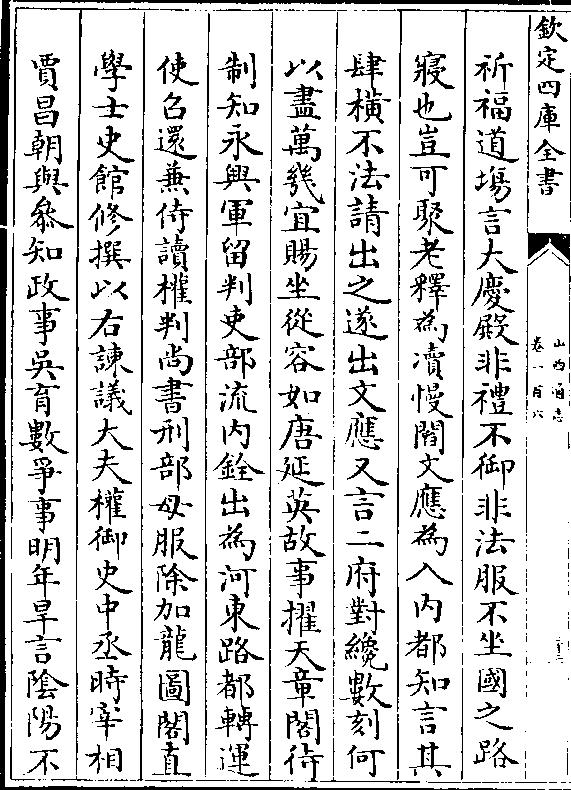 欽定四庫全書
山西通志
卷一百六
祈福道塲言大慶殿非禮不御非法服不坐國之路
寢也豈可聚老釋為瀆慢閻文應為入内都知言其
肆橫不法請出之遂出文應又言二府對纔數刻何
以盡萬幾宜賜坐從容如唐延英故事擢天章閣待
制知永興軍留判吏部流内銓出為河東路都轉運
使召還兼侍讀權判尚書刑部母服除加龍圖閣直
學士史館修撰以右諫議大夫權御史中丞時宰相
賈昌朝與叅知政事吳育數爭事明年旱言陰陽不